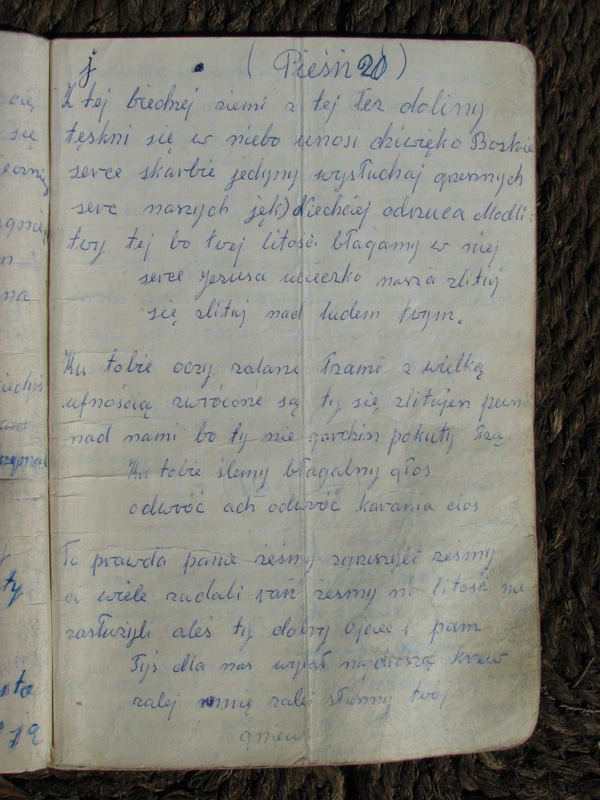 j
( Pieśń 20 )
Z tej biednej ziemi z tej łez doliny
tęskni się w niebo unosi dzwięko Boskie
serce skarbie jedyny wysłuchaj grzennych
serc naszych jęk) Niechciej odrzuca Modli-
twy tej bo twej litość błagamy w niej
serce yezusa ucieczko nasza zlituj
się zlituj nad ludem twym.
Ku tobie oczy zalane łzami z wielką
ufnością zwrócone są ty się zlitujesz pewn
nad nami bo ty nie gardzisz pokuty łzą
Ku tobie ślemy błagalny głos
odwróć ach odwróć karania cios
To prawda panie żeśmy zgrzeszyli żeśmy
ci wiele zadali ran żeśmy na litość nie
zasłużyli aleś ty dobry ojciec i pan
Tyś dla nas wylał najdroszą krew
zalej nią zalej słuszny twój
gniew
cię
się
na
ty
sto
ją